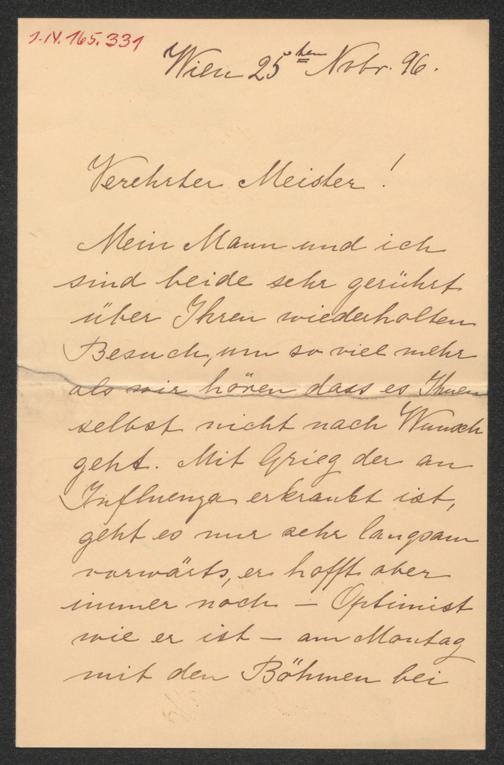 J.N. 165.331
Wien 25ten Novbr. 96.
Verehrter Meister!
Mein Mann und ich
sind beide sehr gerührt
über Ihren wiederholten
Besuch, um so viel mehr
als wir hören dass es Ihnen
selbst nicht nach Wunsch
geht. Mit Grieg der an
Influenza erkrankt ist,
geht es nur sehr langsam
vorwärts, er hofft aber
immer noch – Optimist
wie er ist – am Montag
mit den Böhmen bei